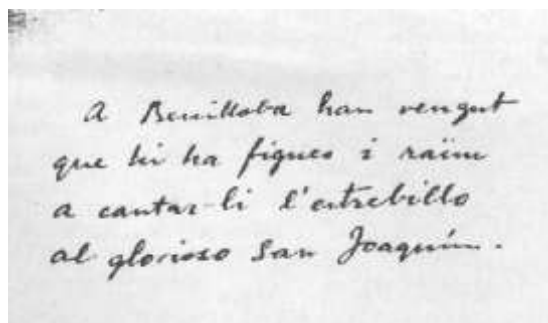 A Benilloba han vengut
que hi ha figues i raïm
a cantar-li l'estrebillo
al glorioso San Joaquím.